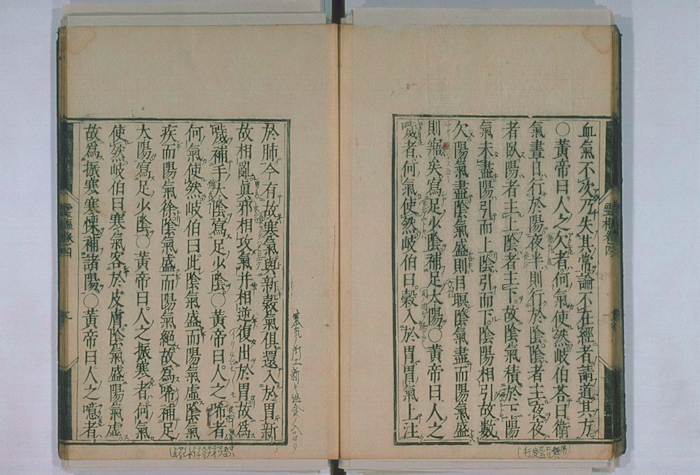 血氣不次乃失其常論不在經者請道其方
○黃帝曰人之欠者何氣使然岐伯荅曰衛
氣晝日行於陽夜半則行於陰陰者主夜夜
者臥陽者主上陰者主下故陰氣積於下陽
氣未盡陽引而上陰引而下陰陽相引故數
欠陽氣盡陰氣盛則目瞑陰氣盡而陽氣盛
則寤矣寫足少陰補足太陽○黃帝曰人之
噦者何氣使然岐伯曰穀入於胃胃氣上注
於肺今有故寒氣與新穀氣俱還入於胃新
故相亂眞邪相攻氣并相逆復出於胃故爲
噦補手太陰寫足少陰○黃帝曰人之唏者
何氣使然岐伯曰此陰氣盛而陽氣虛陰氣
疾而陽氣徐陰氣盛而陽氣絕故爲唏補足
太陽寫足少陰○黃帝曰人之振寒者何氣
使然岐伯曰寒氣客於皮膚陰氣盛陽氣虛
故爲振寒寒慄補諸陽○黃帝曰人之噫者
靈樞卷四